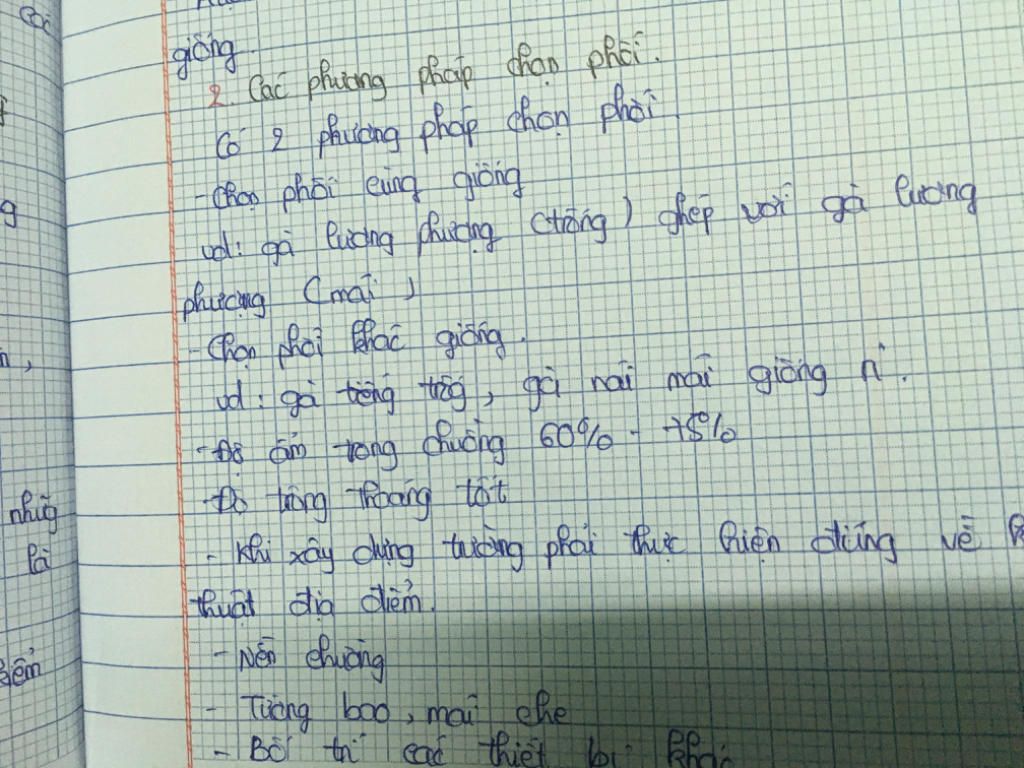 giống
2. Các phương pháp chọn phối.
Có 2 phương pháp chọn phối
- Chọn phối cùng giống
vd: gà lương phượng (trống) ghép với gà lương
phượng (mái)
- Chọn phối khác giống.
vd: gà trống, gà mái giống
- Độ ẩm trong chuồng 60% - 75%
- Độ thông thoáng tốt
- Khi xây dựng tường phải thực hiện đúng về
thuật địa điểm.
- Nền chuồng
- Tường bao, mái che
- Bố trí các thiết bị khác
nhiê
là